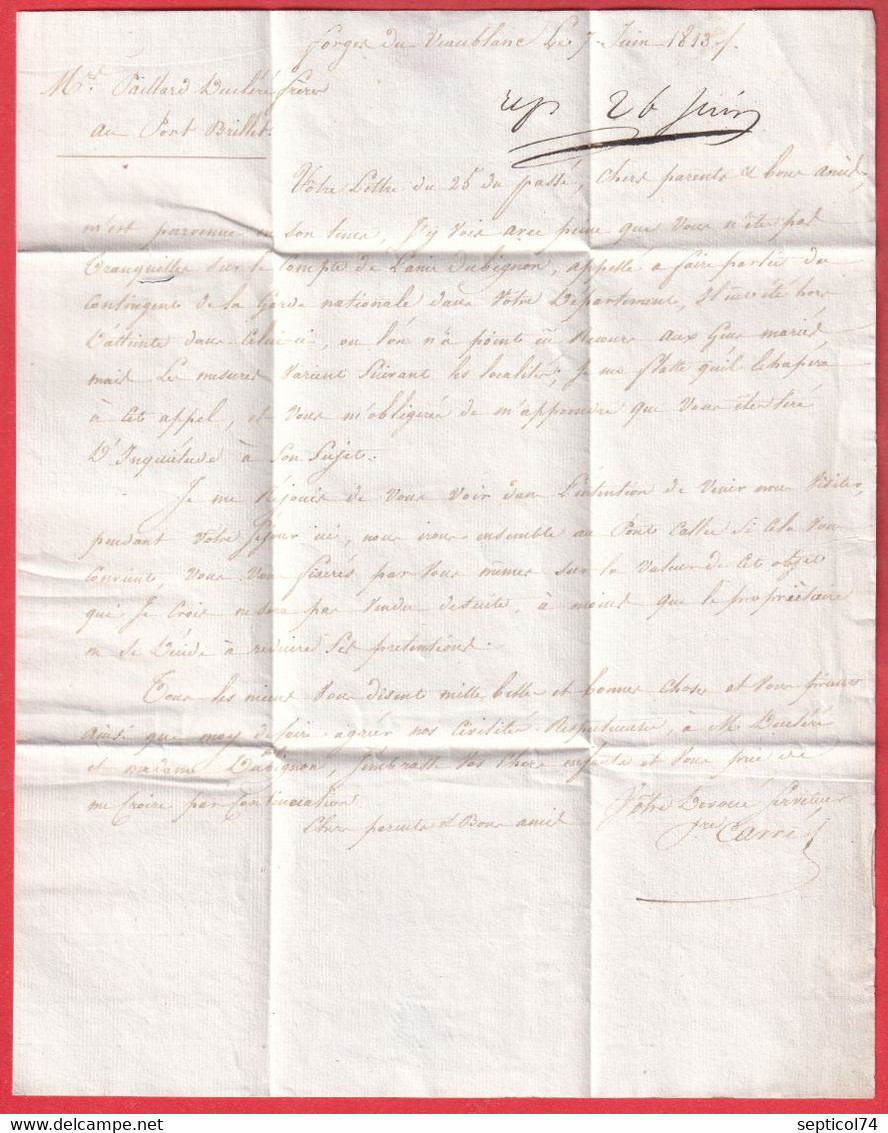 forges du Vaublanc Le 7 Juin 1813 /.
Mrs Paillard Ducléré frères
au Port Brillet
rep 26 juin
Votre Lettre du 25 du passé, Chers parents & bons amis,
m'est parvenue en son tems, J'y vois avec peine que Vous n'ête pas
Tranquilles sur le Compte de L'ami Dubignon, appellé a faire partie du
Contingent de la Garde nationale dans Votre Département, Il eut été hors
D'atteinte dans Celui-ci, ou l'on n'a point eü Recours aux Gens mariés,
mais Les mesures Varient Suivant les localités; Je me flatte quil Echapera
à Cet appel, et Vous m'obligerés de m'apprendre que Vous ête tiré
D'Inquiétude à Son Sujet.
Je me Réjouis de Vous Voir dans L'intention de Venir nous Visiter,
pendant Votre Séjour ici, nous irons ensemble au Pont Callec si Cela Vous
Convient, Vous Vous fixerés par Vous mêmes sur la Valeur de Cet objet
qui Je Crois ne sera pas Vendu de suite, à moins que le propriétaire
ne se Décide à réduire Ses prétentions.
Tous les miens Vous disent mille belles et bonnes Choses et Vous prient
ainsi que moy de faire agréer nos Civilités Respectueuses, à M. Ducléré
et madame Dubignon, J'embrasse Vos Chers enfants et Vous prie de
me Croire par Continuation
Chers parents & Bons amis
Votre Dévoué Serviteur
Carré
septicol74